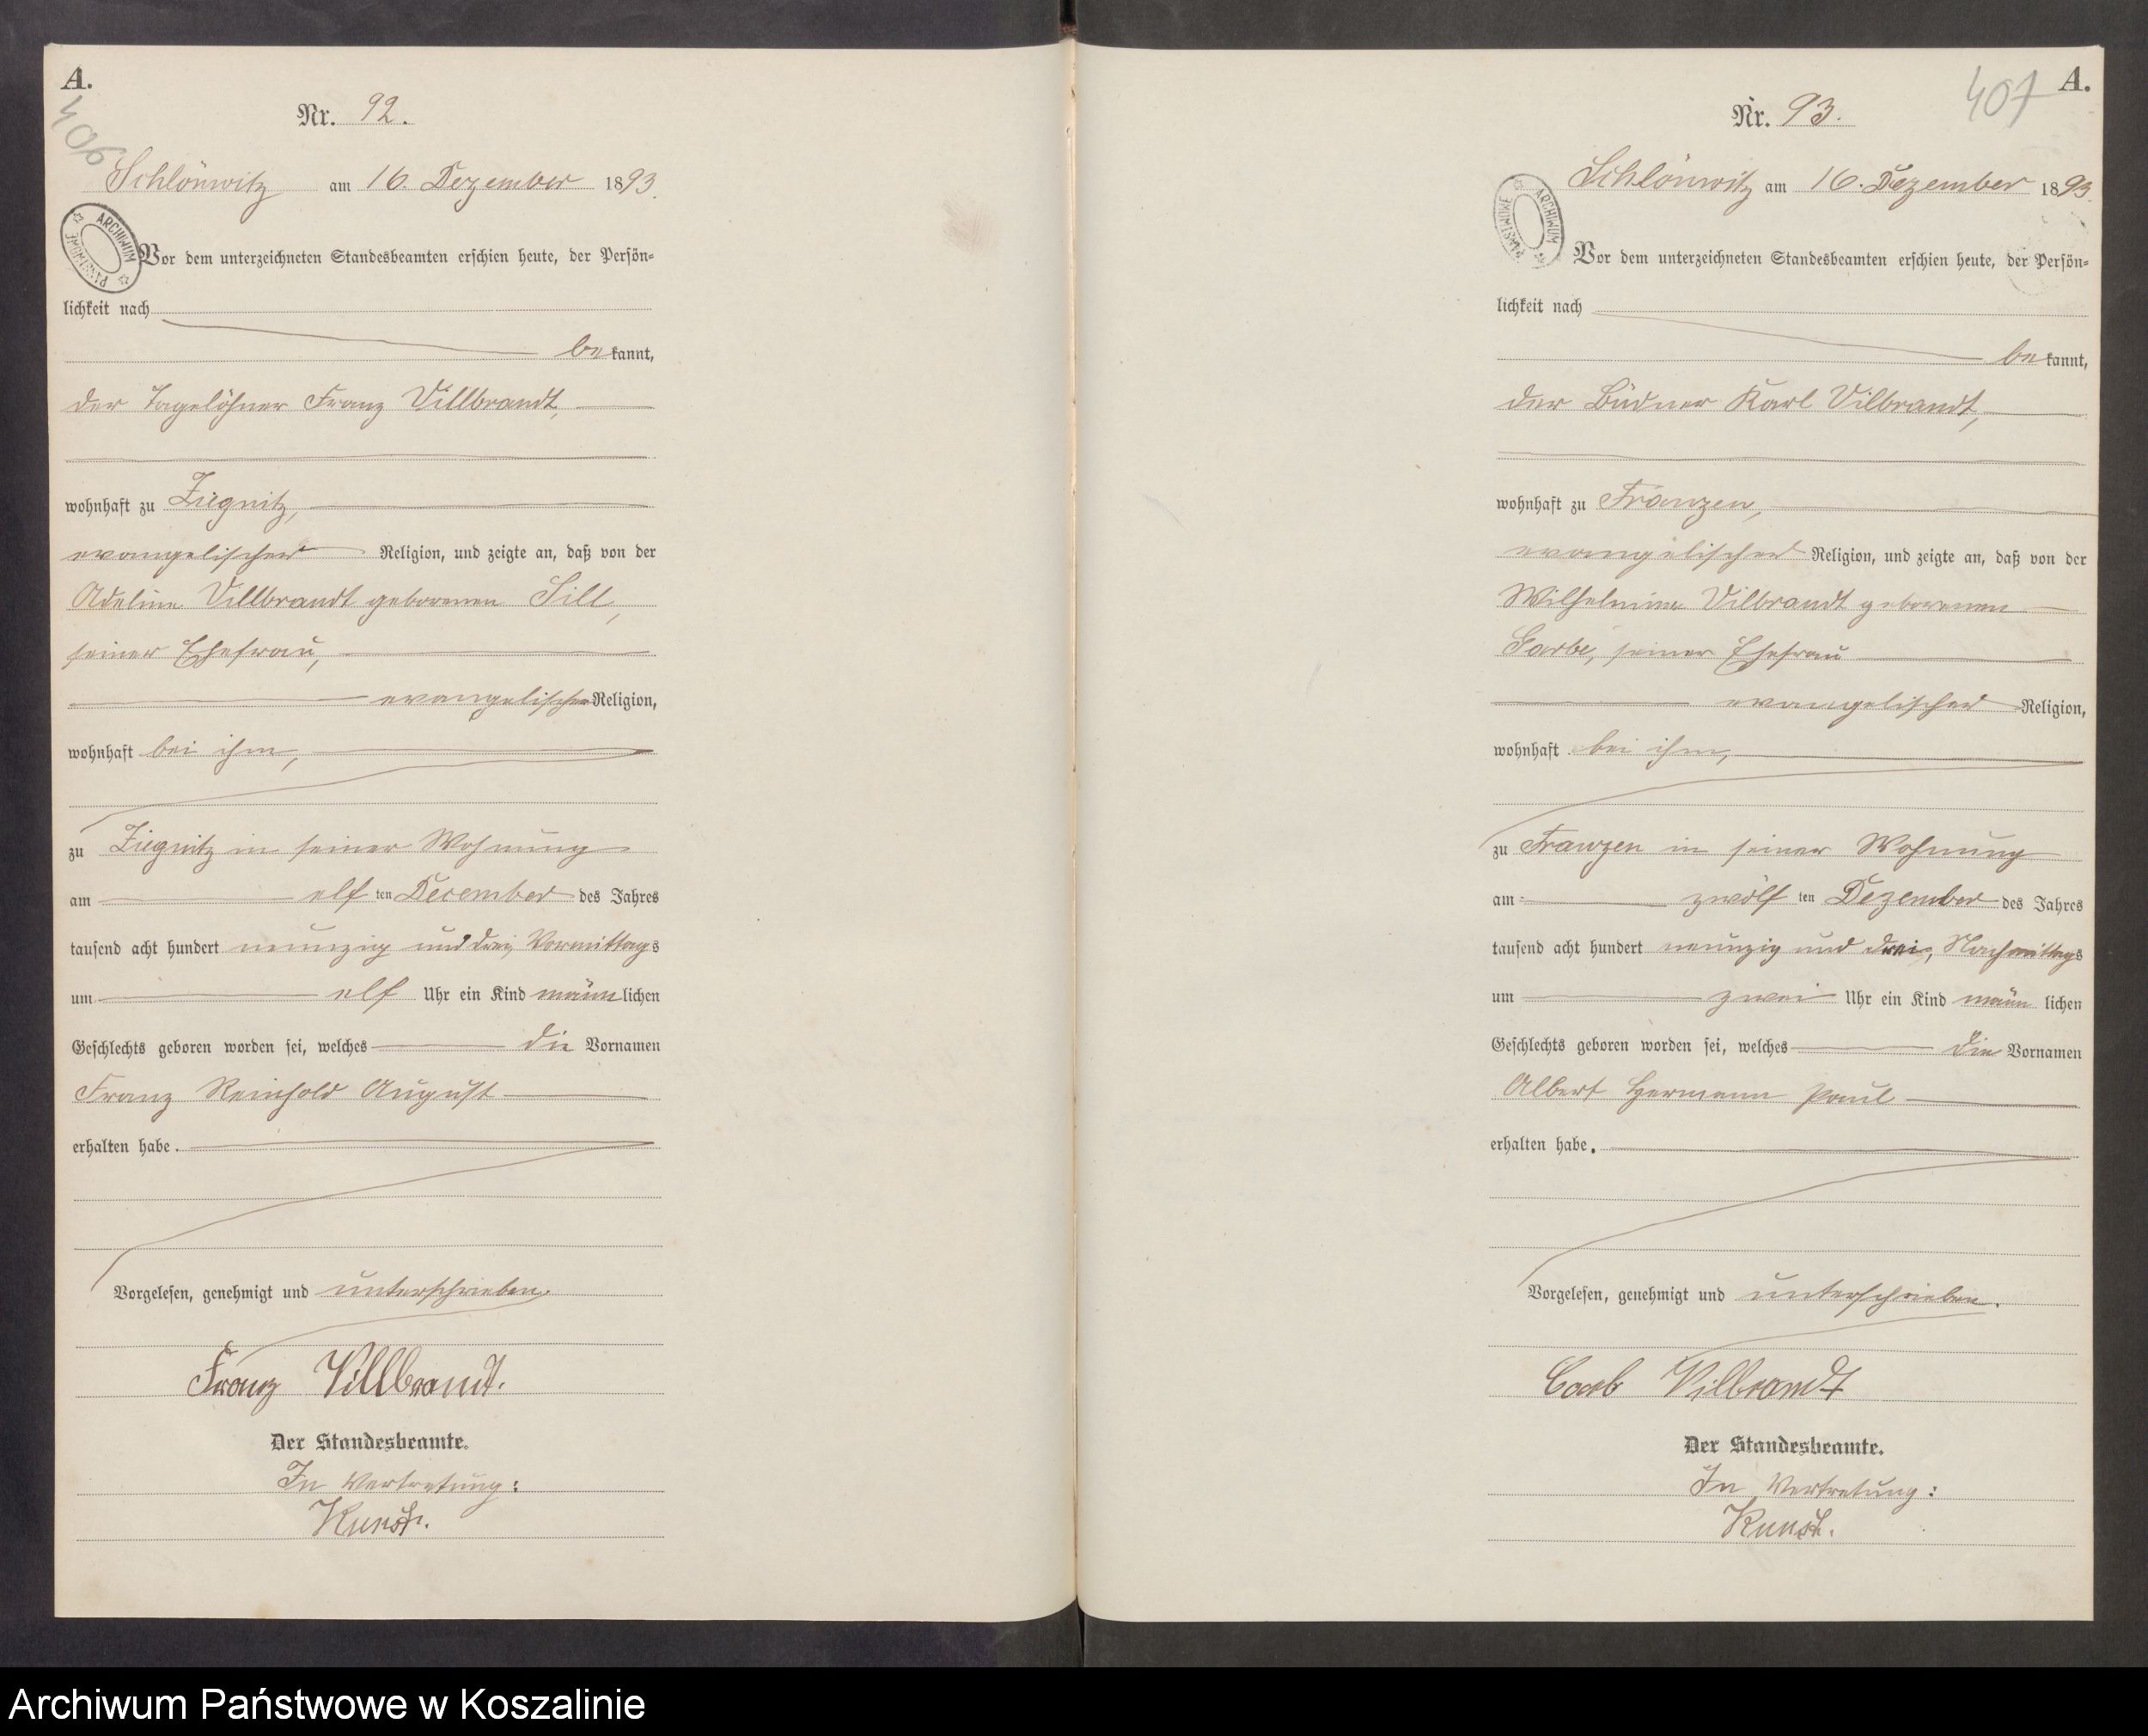 A.
406
Nr. 92.
Schlönwitz am 16. Dezember 1893.
ARCHIWUM PAŃSTWOWE
Vor dem unterzeichneten Standesbeamten erschien heute, der Persön-
lichkeit nach
bekannt,
der Tagelöhner Franz Villbrandt,
wohnhaft zu Ziegnitz,
evangelischer Religion, und zeigte an, daß von der
Adeline Villbrandt geborenen Sill,
seiner Ehefrau,
evangelischer Religion,
wohnhaft bei ihm,
zu Ziegnitz in seiner Wohnung
am elf ten December des Jahres
tausend acht hundert neunzig und drei, Vormittags
um elf Uhr ein Kind männlichen
Geschlechts geboren worden sei, welches die Vornamen
Franz Reinhold August
erhalten habe.
Vorgelesen, genehmigt und unterschrieben.
Franz Villbrandt.
Der Standesbeamte.
In Vertretung:
A.
407
Nr. 93.
Schlönwitz am 16. Dezember 1893.
ARCHIWUM PAŃSTWOWE
Vor dem unterzeichneten Standesbeamten erschien heute, der Persön-
lichkeit nach
bekannt,
der Büdner Karl Vilbrandt,
wohnhaft zu Franzen,
evangelischer Religion, und zeigte an, daß von der
Wilhelmine Vilbrandt geborenen
Garbe, seiner Ehefrau
evangelischer Religion,
wohnhaft bei ihm,
zu Franzen in seiner Wohnung
am zwölf ten Dezember des Jahres
tausend acht hundert neunzig und drei, Nachmittags
um zwei Uhr ein Kind männ lichen
Geschlechts geboren worden sei, welches die Vornamen
Albert Hermann Paul
erhalten habe.
Vorgelesen, genehmigt und unterschrieben.
Vilbrandt
Der Standesbeamte.
In Vertretung:
Archiwum Państwowe w Koszalinie